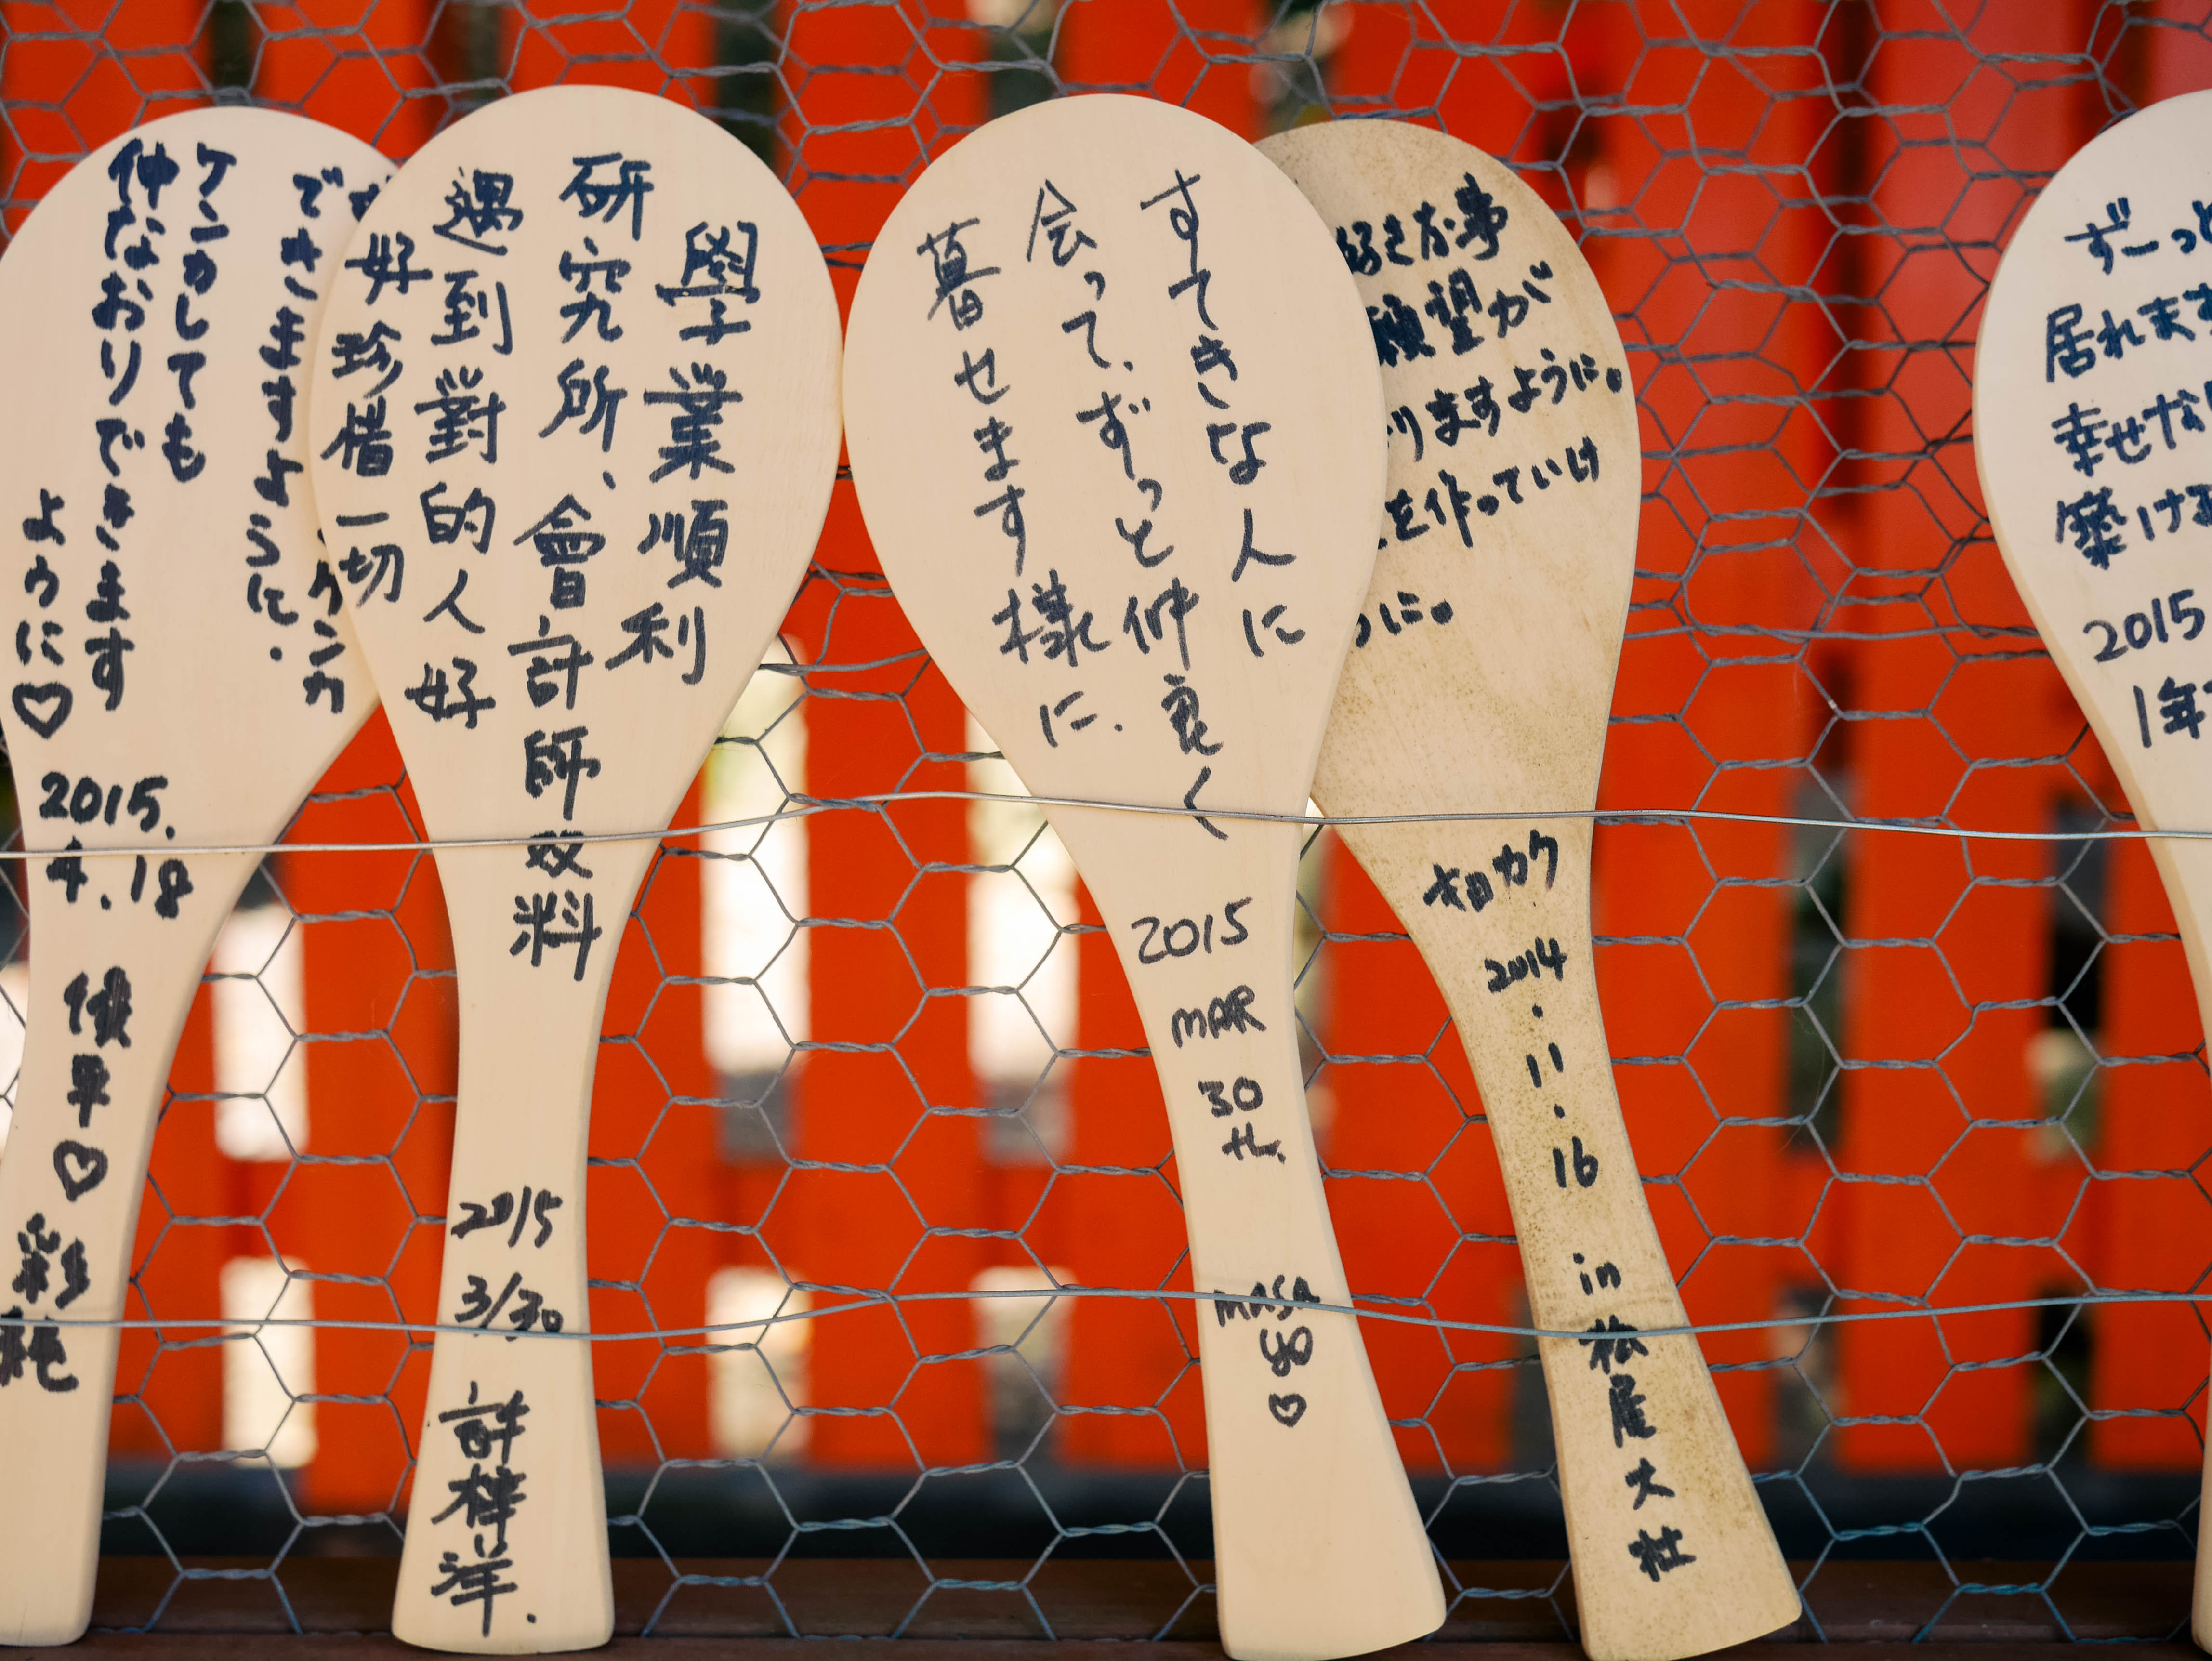 できますように.
ケンカしても
仲なおりできます
ように♡
2015.
4.18
彩
學業順利
研究所、會計師雙料
遇到對的人好
好珍惜一切
2015
3/30
許梓洋.
すてきな人に
会って、ずっと仲良く
暮せます様に.
2015
MAR
30
th.
MASA
YO
♡
好きな事
願望が
りますように。
を作っていけ
うに。
オカク
2014
.
11
.
16
in
松尾大社
ずーっと
居れます
幸せな
築ける
2015
1年